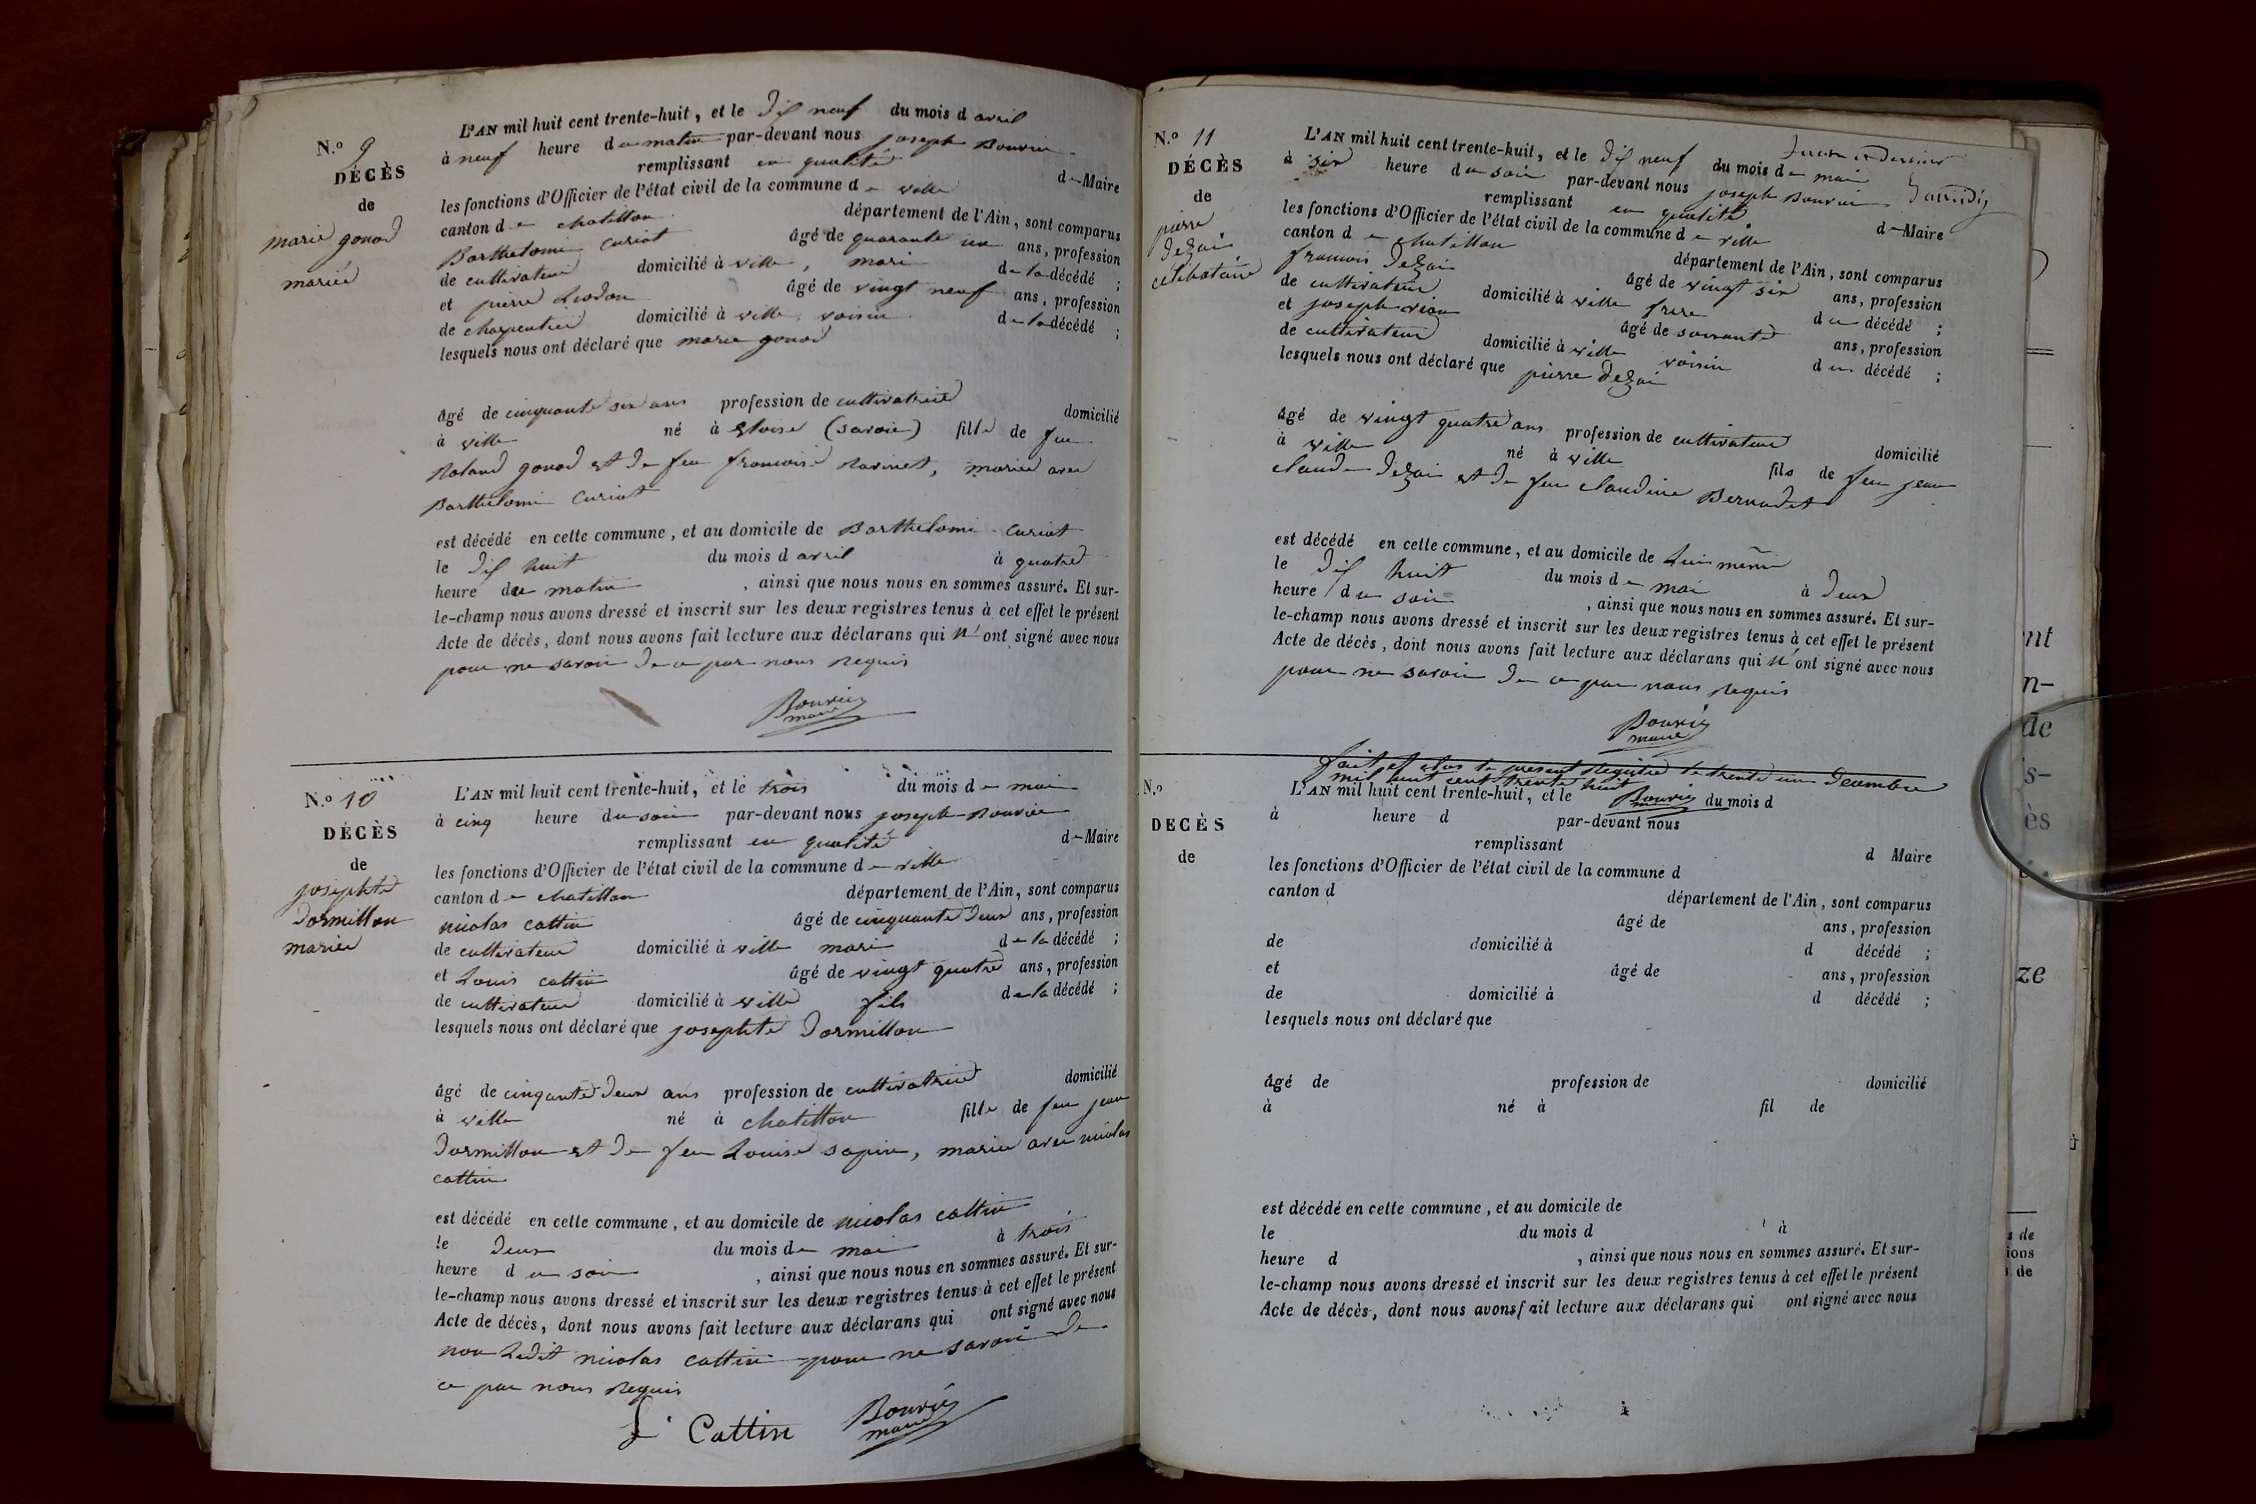 N.º 9
DÉCÈS
de
marie gonod
mariée
L'AN mil huit cent trente-huit, et le dix neuf du mois d avril
à neuf heure du matin par-devant nous joseph Bouvier
remplissant en qualité de Maire
les fonctions d'Officier de l'état civil de la commune de ville
canton de chatillon département de l'Ain, sont comparus
Barthelemi Curiat âgé de quarante un ans, profession
de cultivateur domicilié à ville, mari de la décédé ;
et pierre âgé de vingt neuf ans, profession
de charpentier domicilié à ville, voisin de la décédé ;
lesquels nous ont déclaré que marie gonod
âgé de cinquante six ans profession de cultivatrice domicilié
à ville né à Eloise (savoie) fille de feu
Roland gonod et de feu francoise Ravinet, mariée avec
Barthelemi Curiat
est décédé en cette commune, et au domicile de Barthelemi Curiat
le dix huit du mois d avril à quatre
heure du matin, ainsi que nous nous en sommes assuré. Et sur-
le-champ nous avons dressé et inscrit sur les deux registres tenus à cet effet le présent
Acte de décès, dont nous avons fait lecture aux déclarans qui n'ont signé avec nous
pour ne savoir de ce par nous Requis
Bouvier
maire
N.º 10
DÉCÈS
de
josephte
Dormillon
mariée
L'AN mil huit cent trente-huit, et le trois du mois de mai
à cinq heure du soir par-devant nous joseph Bouvier
remplissant en qualité de Maire
les fonctions d'Officier de l'état civil de la commune de ville
canton de chatillon département de l'Ain, sont comparus
nicolas cattin âgé de cinquante deux ans, profession
de cultivateur domicilié à ville mari de la décédé ;
et Louis cattin âgé de vingt quatre ans, profession
de cultivateur domicilié à ville fils de la décédé ;
lesquels nous ont déclaré que josephte Dormillon
âgé de cinquante deux ans profession de cultivatrice domicilié
à ville né à chatillon fille de feu jean
Dormillon et de feu Louise sapin, mariée avec nicolas
cattin
est décédé en cette commune, et au domicile de nicolas cattin
le deux du mois de mai à trois
heure du soir, ainsi que nous nous en sommes assuré. Et sur-
le-champ nous avons dressé et inscrit sur les deux registres tenus à cet effet le présent
Acte de décès, dont nous avons fait lecture aux déclarans qui ont signé avec nous
non Ledit nicolas cattin pour ne savoir de
ce par nous Requis
L. Cattin Bouvier
maire
N.º 11
DÉCÈS
de
pierre
Dezai
celibataire
L'AN mil huit cent trente-huit, et le dix neuf du mois de mai
à six heure du soir par-devant nous joseph Bouvier
remplissant en qualité de Maire
les fonctions d'Officier de l'état civil de la commune de ville
canton de chatillon département de l'Ain, sont comparus
francois Dezai âgé de vingt six ans, profession
de cultivateur domicilié à ville frere du décédé ;
et joseph âgé de soixante ans, profession
de cultivateur domicilié à ville voisin du décédé ;
lesquels nous ont déclaré que pierre Dezai
âgé de vingt quatre ans profession de cultivateur domicilié
à ville né à ville fils de feu jean
claude Dezai et de feu claudine Bernadet
est décédé en cette commune, et au domicile de Lui même
le dix huit du mois de mai à deux
heure du soir, ainsi que nous nous en sommes assuré. Et sur-
le-champ nous avons dressé et inscrit sur les deux registres tenus à cet effet le présent
Acte de décès, dont nous avons fait lecture aux déclarans qui n'ont signé avec nous
pour ne savoir de ce par nous Requis
Bouvier
maire
fait et clos le present Registre le trente un Decembre
mil huit cent trente huit
Bouvier
N.º
DECÈS
de
L'AN mil huit cent trente-huit, et le du mois d
à heure d par-devant nous
remplissant d Maire
les fonctions d'Officier de l'état civil de la commune d
canton d département de l'Ain, sont comparus
âgé de ans, profession
de domicilié à d décédé ;
et âgé de ans, profession
de domicilié à d décédé ;
lesquels nous ont déclaré que
âgé de profession de domicilié
à né à fil de
est décédé en cette commune, et au domicile de
le du mois d à
heure d , ainsi que nous nous en sommes assuré. Et sur-
le-champ nous avons dressé et inscrit sur les deux registres tenus à cet effet le présent
Acte de décès, dont nous avons fait lecture aux déclarans qui ont signé avec nous